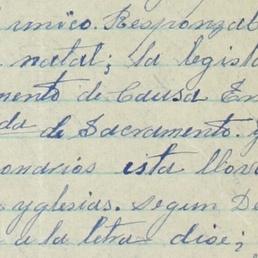 unico. Responzab
natal; la legisla
mento de Causa En
da de Sacramento. y
onarios esta llova
yglesias. Segun De
a la letra dise;